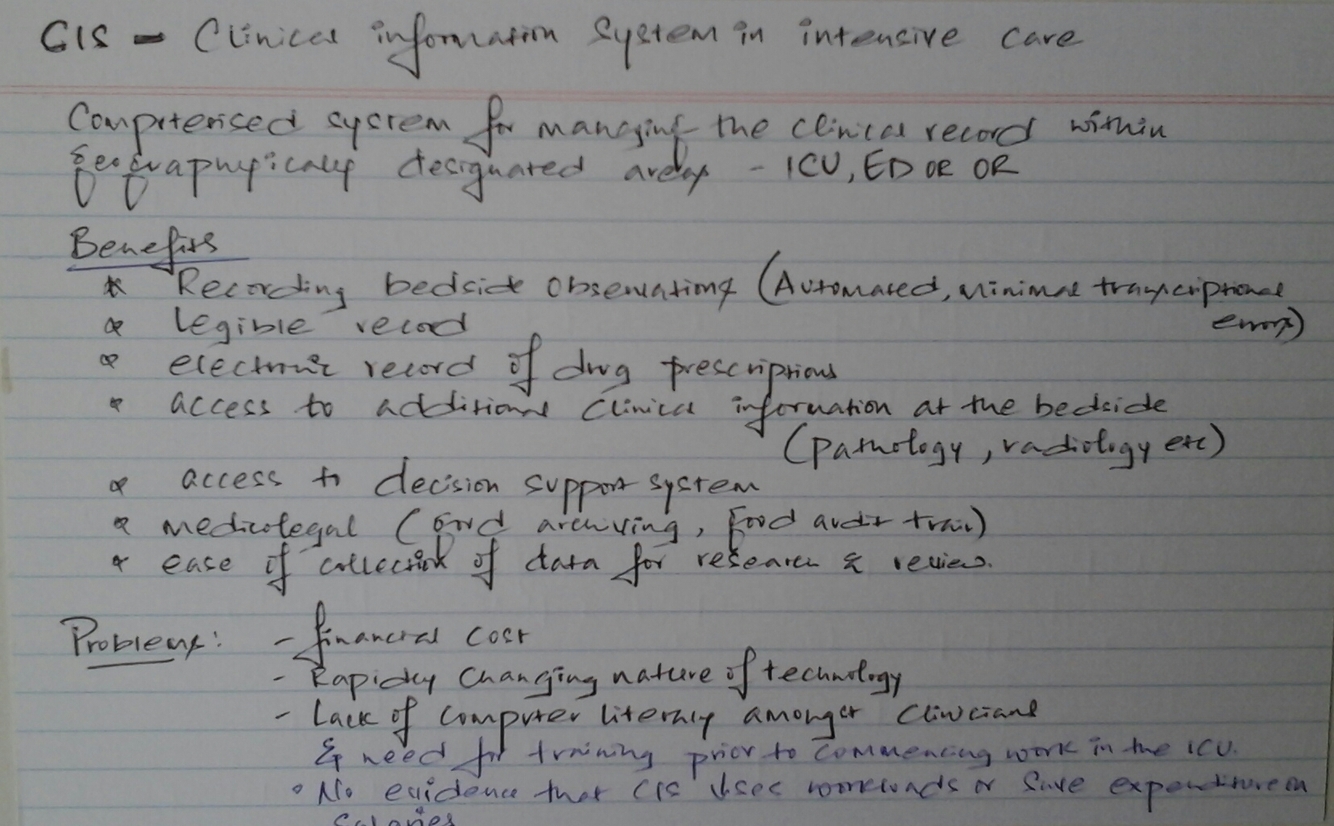 CIS - Clinical information System in intensive care
Computerised system for managing the clinical record within
geographically designated areas - ICU, ED OR OR
Benefits
* Recording bedside observations (Automated, minimal transcriptional
errors)
* Legible record
* electronic record of drug prescriptions
* access to additional clinical information at the bedside
(pathology, radiology etc)
* access to decision support system
* medicolegal (good archiving, good audit trail)
* ease of collection of data for research & review.
Problems: - financial cost
- Rapidly changing nature of technology
- Lack of computer literacy amongst clinicians
& need for training prior to commencing work in the ICU.
• No evidence that CIS workloads or save expenditure on
salaries